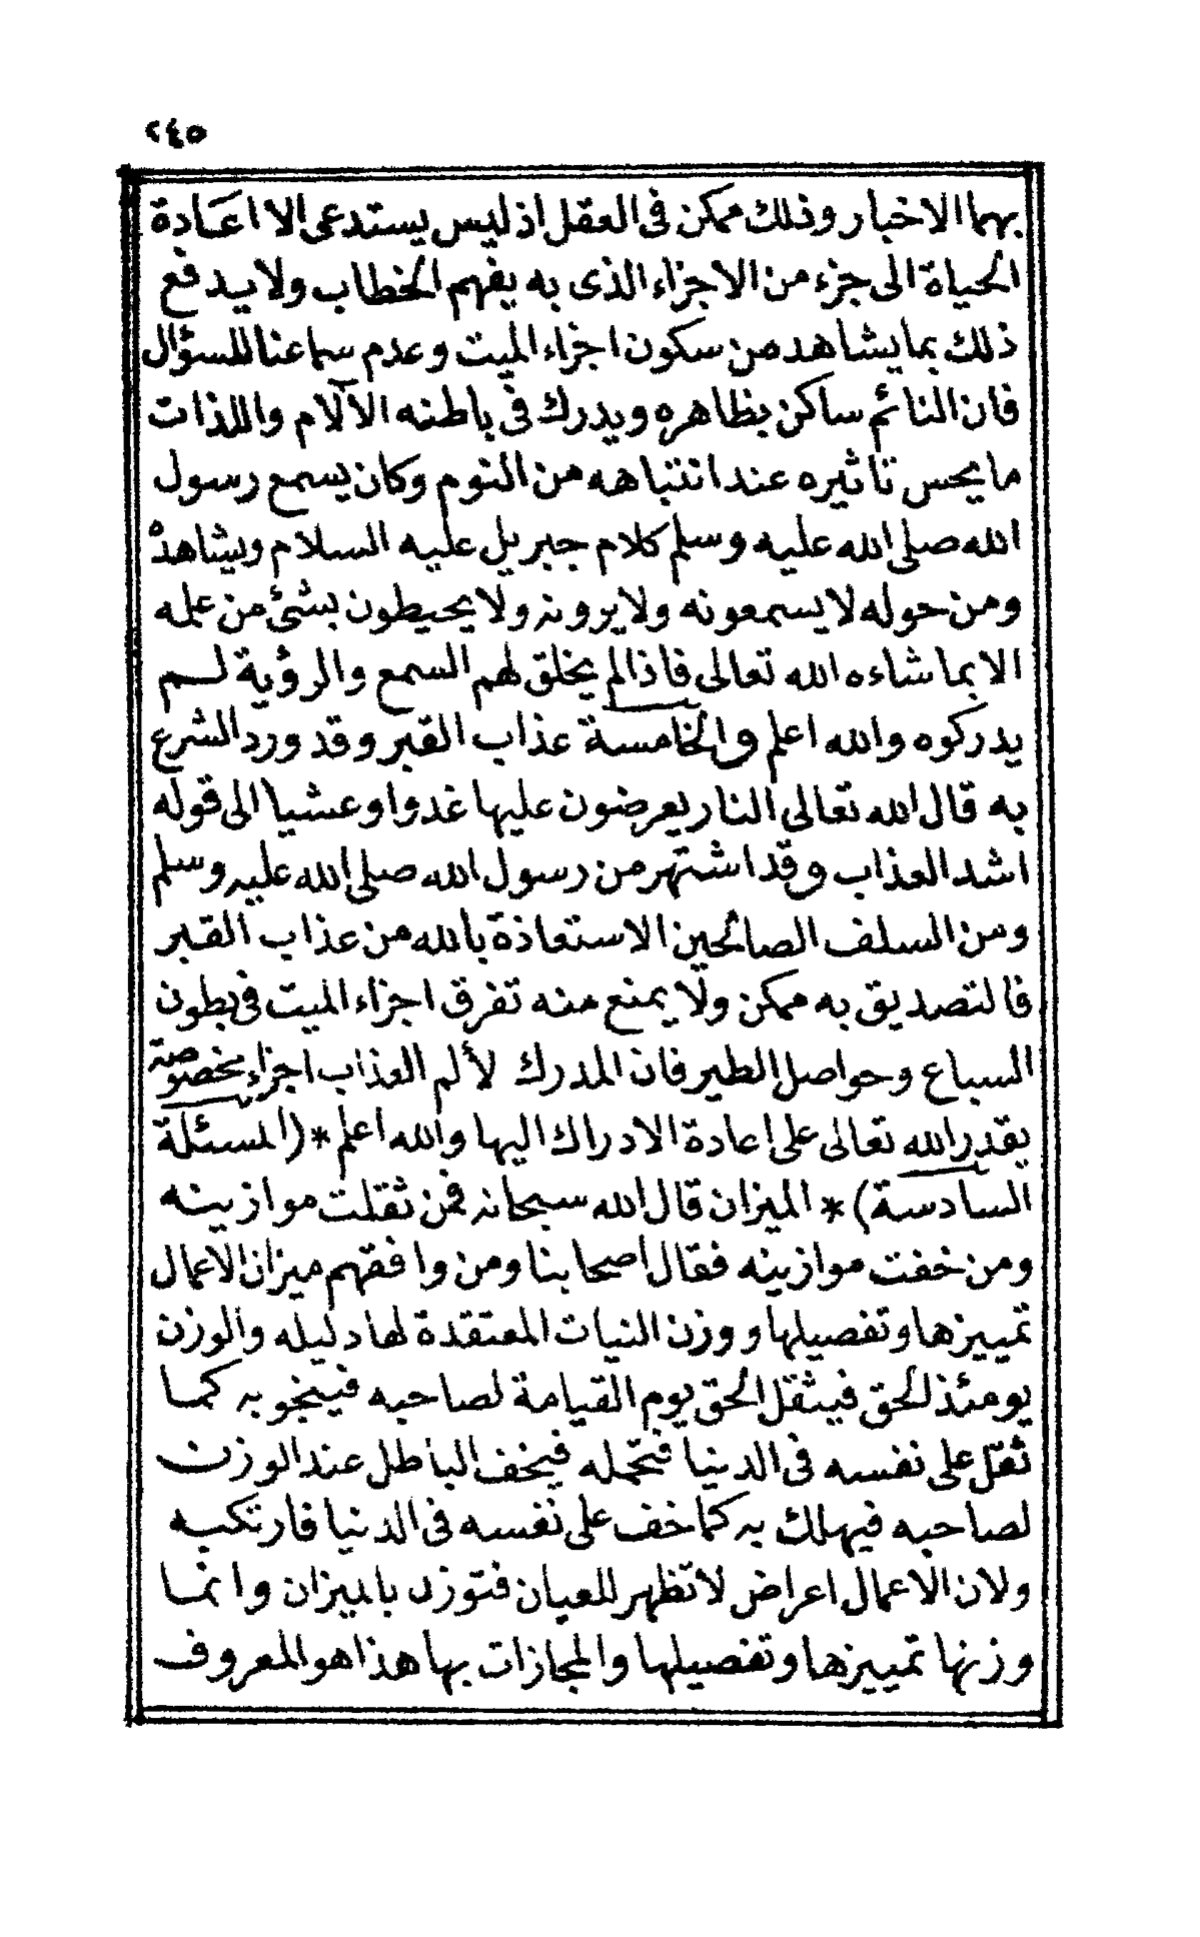 ٢٤٥
بهما الاخبار وذلك ممكن فى العقل اذ ليس يستدعى الا اعادة
الحياة الى جزء من الاجزاء الذى به يفهم الخطاب ولا يدفع
ذلك بما يشاهد من سكون اجزاء الميت وعدم سماعنا للسؤال
فان النائم ساكن بظاهره ويدرك فى باطنه الآلام واللذات
ما يحس تاثيره عند انتباهه من النوم وكان يسمع رسول
الله صلى الله عليه وسلم كلام جبريل عليه السلام ويشاهدهْ
ومن حوله لا يسمعونه ولا يرونه ولا يحيطون بشئ من علمه
الا بما شاءه الله تعالى فاذا لم يخلق لهم السمع والرؤية لم
يدركوه والله اعلم والخامسة عذاب القبر وقد ورد الشرع
به قال الله تعالى النار يعرضون عليها غدوا وعشيا الى قوله
اشد العذاب وقد اشتهر من رسول الله صلى الله عليه وسلم
ومن السلف الصالحين الاستعاذة بالله من عذاب القبر
فالتصديق به ممكن ولا يمنع منه تفرق اجزاء الميت فى بطون
السباع وحواصل الطير فان المدرك لألم العذاب اجزاء مخصوصة
يقدر الله تعالى على اعادة الادراك اليها والله اعلم * (المسئلة
السادسة) * الميزان قال الله سبحانه فمن ثقلت موازينه
ومن خفت موازينه فقال اصحابنا ومن وافقهم ميزان الاعمال
تمييزها وتفصيلها ووزن النيات المعتقدة لها دليله والوزن
يومئذ لحق فيثقل الحق يوم القيامة لصاحبه فينجو به كما
ثقل على نفسه فى الدنيا فتحمله فيخف الباطل عند الوزن
لصاحبه فيهلك به كما خف على نفسه فى الدنيا فارتكبه
ولان الاعمال اعراض لا تظهر للعيان فتوزن بالميزان وانما
وزنها تمييزها وتفصيلها والمجازات بها هذا هو المعروف